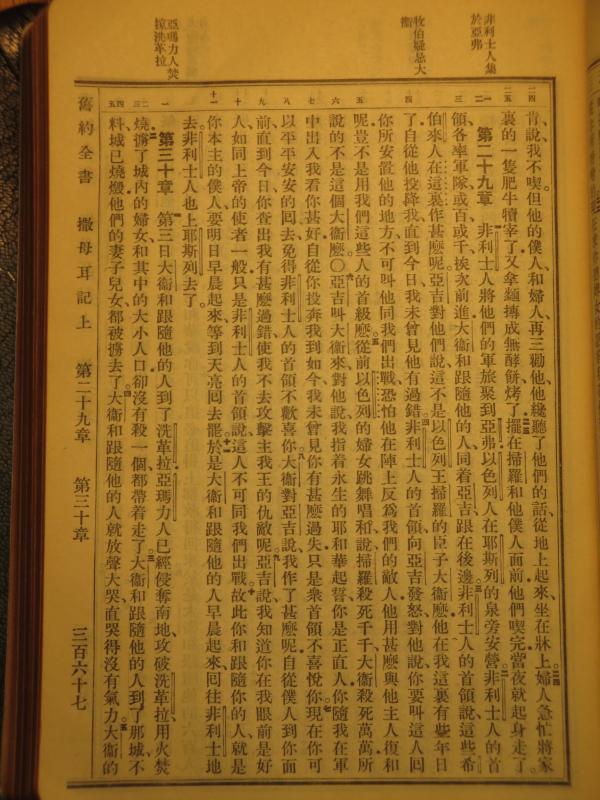 非利士人集
於亞弗
牧伯疑忌大
衞
亞瑪力人焚
掠洗革拉
二四 二五 一二 三 四 五 六 七 八 九 十 十一 一 二三 四五
肯說、我不喫、但他的僕人和婦人、再三勸他、他纔聽了他們的話、從地上起來、坐在牀上。婦人急忙將家
裏的一隻肥牛犢宰了、又拿麵摶成無酵餅烤了。擺在掃羅和他僕人面前、他們喫完、當夜就起身走了。
第二十九章 非利士人將他們的軍旅聚到亞弗、以色列人在耶斯列的泉旁安營。非利士人的首
領各率軍隊、或百或千、挨次前進、大衞和跟隨他的人同着亞吉跟在後邊。非利士人的首領說、這些希
伯來人在這裏作甚麽呢、亞吉對他們說、這不是以色列王掃羅的臣子大衞麽、他在我這裏有些年日
了、自從他投降我直到今日、我未曾見他有過錯。非利士人的首領向亞吉發怒、對他說、你要叫這人回
你所安置他的地方、不可叫他同我們出戰、恐怕他在陣上反爲我們的敵人、他用甚麽與他主人復和
呢、豈不是用我們這些人的首級麽。從前以色列的婦女跳舞唱和說、掃羅殺死千千、大衞殺死萬萬、所
說的不是這個大衞麽。○亞吉叫大衞來、對他說、我指着永生的耶和華起誓、你是正直人、你隨我在軍
中出入、我看你甚好、自從你投奔我到如今、我未曾見你有甚麽過失、只是衆首領不喜悅你。現在你可
以平平安安的回去、免得非利士人的首領不歡喜你。大衞對亞吉說、我作了甚麽呢、自從僕人到你面
前直到今日、你查出我有甚麽過錯、使我不去攻擊主我王的仇敵呢。亞吉說、我知道你在我眼前是好
人、如同上帝的使者一般、只是非利士人的首領說、這人不可同我們出戰。故此你和跟隨你的人、就是
你本主的僕人、要明日早晨起來、等到天亮回去罷。於是大衞和跟隨他的人早晨起來、回往非利士地
去、非利士人也上耶斯列去了。
第三十章 第三日、大衞和跟隨他的人到了洗革拉、亞瑪力人已經侵奪南地、攻破洗革拉、用火焚
燒。擄了城內的婦女、和其中的大小人口、卻沒有殺一個、都帶着走了。大衞和跟隨他的人、到了那城、不
料城已燒燬、他們的妻子兒女都被擄去了。大衞和跟隨他的人就放聲大哭、直哭得沒有氣力。大衞的
舊約全書 撒母耳記上 第二十九章 第三十章 三百六十七